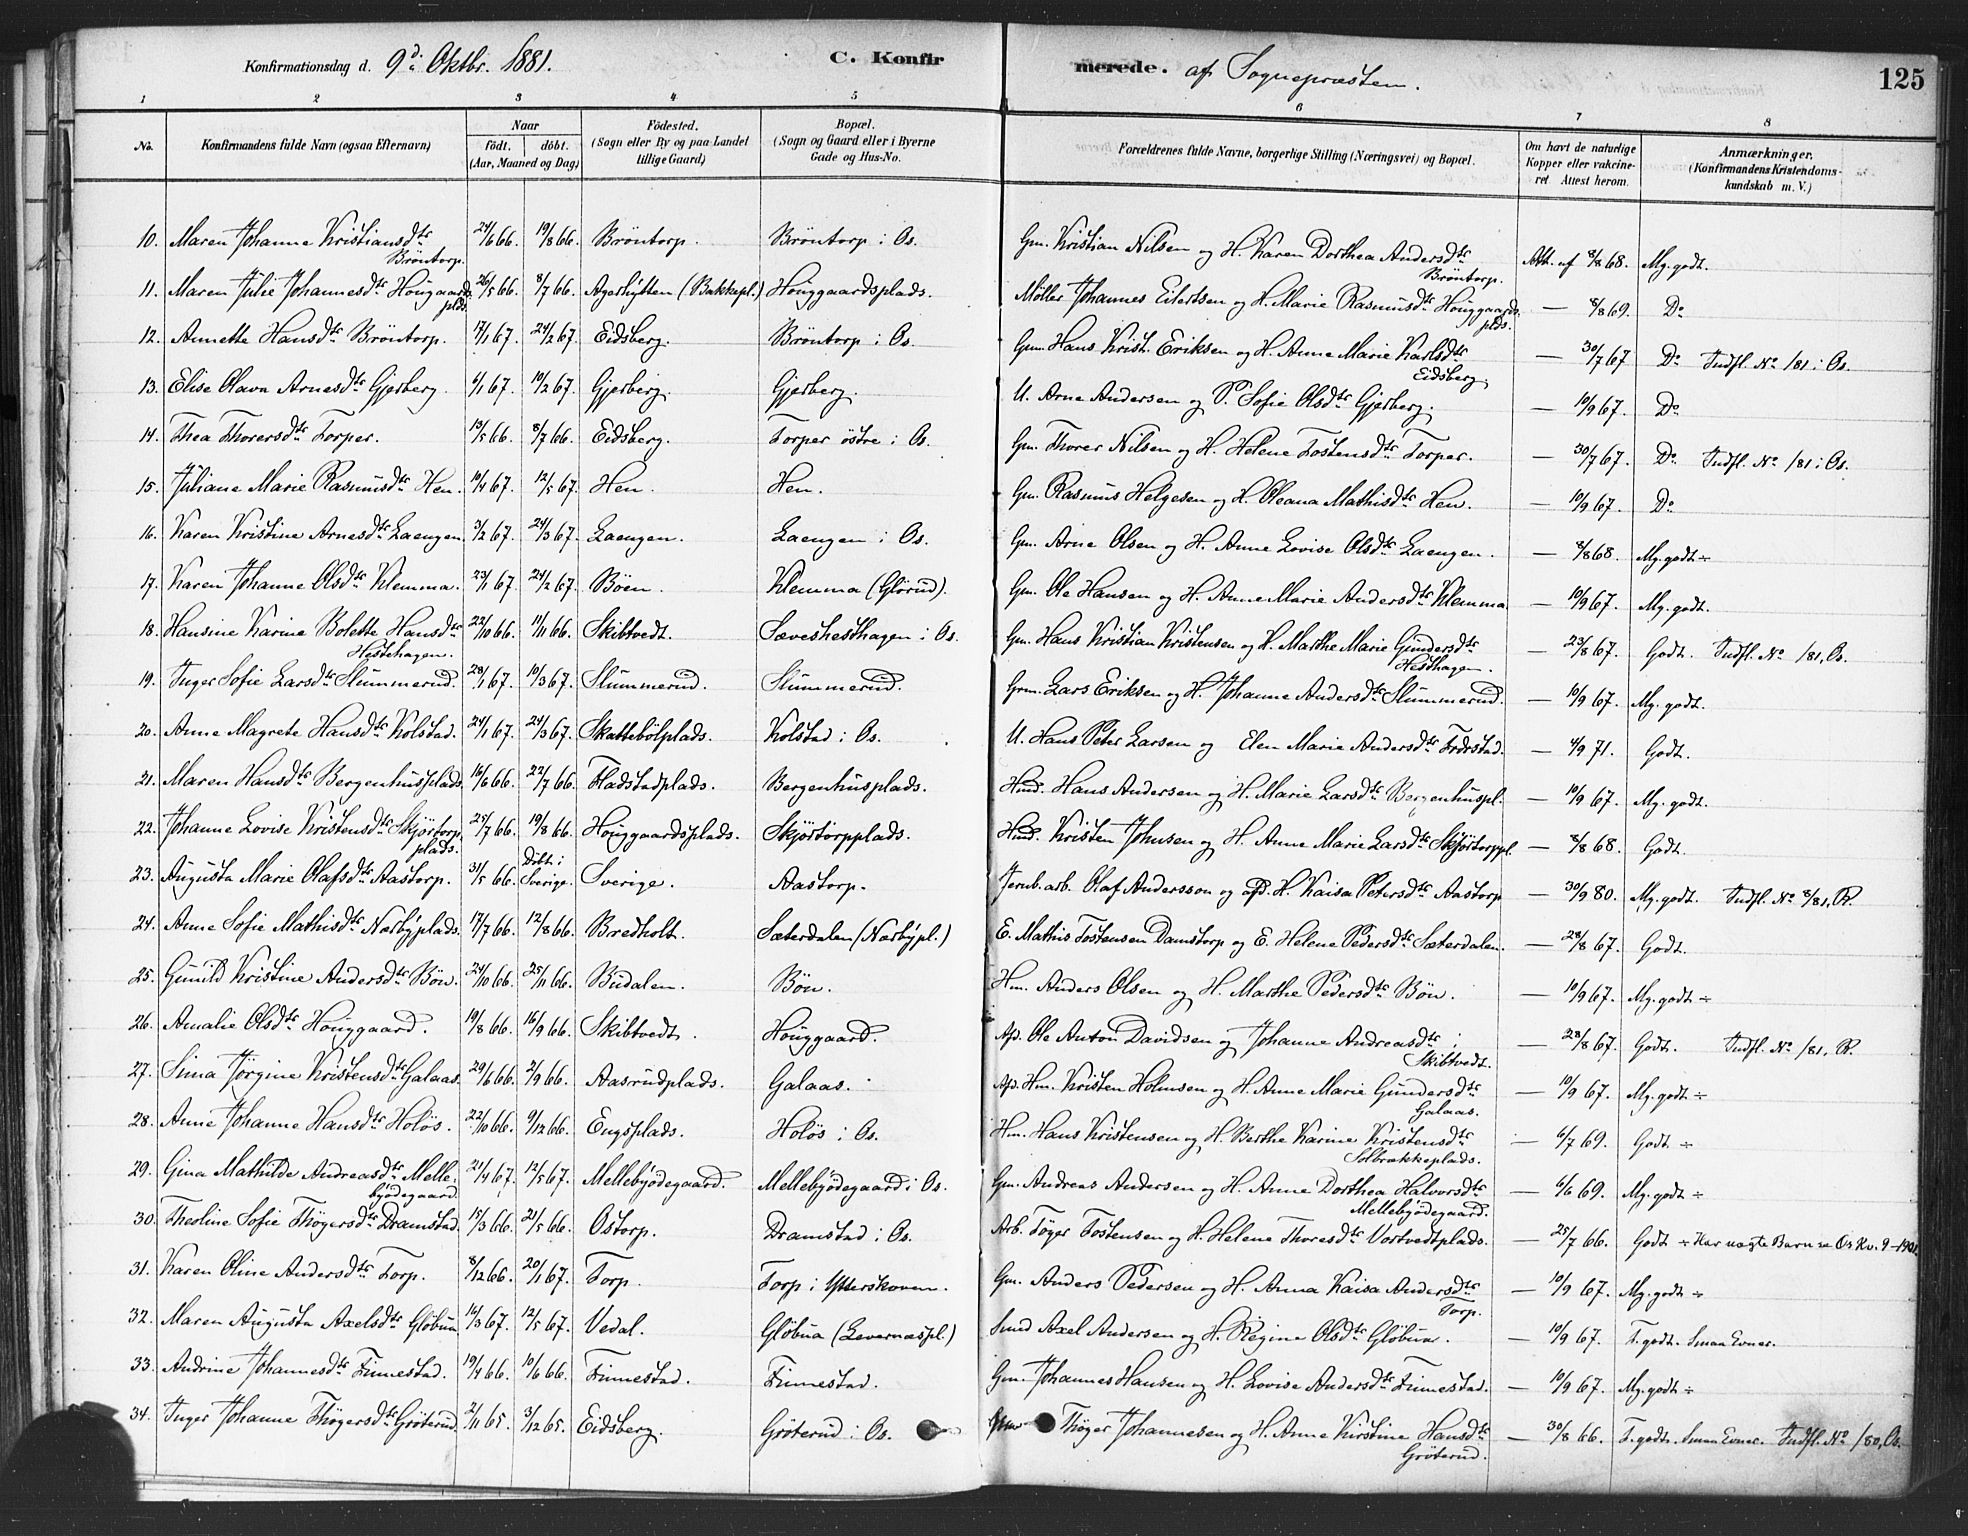 Konfirmationsdag d. 9d. Oktbr. 1881. C. Konfirmerede. af Sognepræsten. 125
1 2 3 4 5 6 7 8
No. Konfirmandens fulde Navn (ogsaa Efternavn) Naar födt. döbt. (Aar, Maaned og Dag) Födested. (Sogn eller By og paa Landet tillige Gaard) Bopæl. (Sogn og Gaard eller i Byerne Gade og Hus-No. Forældrenes fulde Navne, borgerlige Stilling (Næringsvei) og Bopæl. Om havt de naturlige Kopper eller vakcineret Attest herom. Anmærkninger. (Konfirmandens Kristendomskundskab m. V.)
10. Maren Johanne Kristiansdtr Bröntorp. 24/6 66. 19/8 66. Bröntorp. Bröntorp i Os. Gm. Kristian Nilsen og H. Karen Dorthea Andersdtr Bröntorp. Att. af 8/8 68. Mg. godt.
11. Maren Julie Johannesdtr Hougaardsplds. 26/5 66. 8/7 66. Agerhytten (Bakkepl.) Houggaardsplads. Möller Johannes Eilertsen og H. Marie Rasmusdtr Houggaardsplds. — 8/8 69. Do
12. Annette Hansdtr Bröntorp. 17/1 67. 24/2 67. Eidsberg. Bröntorp i Os. Gm. Hans Krist. Eriksen og H. Anne Marie Karlsdtr Eidsberg. — 30/7 67. Do Indfl. No 1 81 i Os.
13. Elise Olava Arnesdtr Gjerberg. 6/1 67. 10/2 67. Gjerberg. Gjerberg. U. Arne Andersen og P. Sofie Olsdtr Gjerberg. — 10/9 67. Do
14. Thea Thorersdtr Torper. 13/5 66. 8/7 66. Eidsberg. Torper östre i Os. Gm. Thorer Nilsen og H. Helene Tostensdtr Torper. — 30/7 67. Do Indfl. No 1 81 i Os.
15. Juliane Marie Rasmusdtr Hen. 10/4 67. 12/5 67. Hen. Hen. Gm. Rasmus Helgesen og H. Oleana Mathisdtr Hen. — 10/9 67. Do
16. Karen Kristine Arnesdtr Laengen. 3/2 67. 24/3 67. Laengen. Laengen i Os. Gm. Arne Olsen og H. Anne Lovise Olsdtr Laengen. — 8/8 68. Mg. godt ÷
17. Karen Johanne Olsdtr Klemma. 23/1 67. 24/2 67. Böen. Klemma (Glörud). Gm. Ole Hansen og H. Anne Marie Andersdtr Klemma — 10/9 67. Mg. godt.
18. Hansine Karine Bolette Hansdtr Hestehagen. 22/10 66. 11/11 66. Skibtvedt. Sæveshesthagen i Os. Gm. Hans Kristian Kristensen og H. Marthe Marie Gundersdtr Hesthagen. — 23/8 67. Godt. Indfl. No 1 81, Os.
19. Inger Sofie Larsdtr Slummerud. 28/1 67. 10/3 67. Slummerud. Slummerud. Grm. Lars Eriksen og H. Johanne Andersdtr Slummerud. — 10/9 67. Mg. godt.
20. Anne Magrete Hansdtr Kolstad. 24/1 67. 24/3 67. Skattebölplads. Kolstad i Os. U. Hans Peter Larsen og Elen Marie Andersdtr — 4/9 71. Godt.
21. Maren Hansdtr Bergenhusplads. 16/6 66. 22/7 66. Fladstadplads. Bergenhusplads. Hmd. Hans Andersen og H. Marie Larsdtr Bergenhuspl. — 10/9 67. Mg. godt.
22. Johanne Lovise Kristensdtr Skjörtorpplads. 25/7 66. 19/8 66. Houggaardsplads. Skjörtorpplads. Hmd. Kristen Johnsen og H. Anne Marie Larsdtr Skjörtorppl. — 8/8 68. Godt.
23. Augusta Marie Olafsdtr Aastorp. 31/5 66. Döbt i Sverige. Sverige. Aastorp. Jernb. arb. Olaf Andersson og afd. H. Kaisa Petersdtr Aastorp — 30/9 80. Mg. godt. Indfl. No 8/81, R.
24. Anne Sofie Mathisdtr Narbyplads. 17/7 66. 12/8 66. Bredholt. Sæterdalen (Narbypl.) E. Mathis Tostensen Damstorp og E. Helene Pedersdtr Sæterdalen. — 28/8 67. Godt.
25. Gunild Kristine Andersdtr Bön. 24/10 66. 25/11 66. Budalen. Bön. Hm. Anders Olsen og H. Marthe Pedersdtr Bön. — 10/9 67. Mg. godt ÷
26. Amalie Olsdtr Houggaard. 19/8 66. 16/9 66. Skibtvedt. Houggaard. Ap. Ole Anton Davidsen og Johanne Andreasdtr i Skibtvedt. — 28/8 67. Godt. Indfl. No 1 81, R.
27. Sina Jörgine Kristensdtr Galaas. 29/6 66. 2/9 66. Aasrudplads. Galaas. Ap. Hm. Kristen Holmsen og H. Anne Marie Gundersdtr Galaas. — 10/9 67. Mg. godt ÷
28. Anne Johanne Hansdtr Holös. 22/10 66. 9/12 66. Engsplads. Holös i Os. Hm. Hans Kristensen og H. Berthe Karine Kristensdtr Solbrækkeplads. — 6/7 69. Godt ÷
29. Gina Mathilde Andreasdtr Mellebyödegaard 21/4 67. 12/5 67. Mellebyödegaard. Mellebyödegaard i Os. Gm. Andreas Andersen og H. Anne Dorthea Halvorsdtr Mellebyödegaard. — 6/6 69. Mg. godt ÷
30. Therline Sofie Thögersdtr Dramstad. 15/3 66. 21/5 66. Ostorp. Dramstad i Os. Arb. Töger Tostensen og H. Helene Thoresdtr Vortvedtplads. — 25/7 66. Godt ÷ Har uægte Barn se Os Kv. 9-1901.
31. Karen Oline Andersdtr Torp. 8/12 66. 20/1 67. Torp. Torp i Ytterskoven. Gm. Anders Pedersen og H. Anna Kaisa Andersdtr Torp. — 10/9 67. Mg. godt ÷
32. Maren Augusta Axelsdtr Glöbua. 16/3 67. 12/5 67. Vedal. Glöbua (Levernæspl.) Smed Axel Andersen og H. Regine Olsdtr Glöbua. — 10/9 67. T. godt. Smaa Evner.
33. Andrine Johannesdtr Finnestad. 19/4 66. 10/6 66. Finnestad. Finnestad. Gm. Johannes Hansen og H. Lovise Andersdtr Finnestad. — 10/9 67. Mg. godt ÷
34. Inger Johanne Thögersdtr Gröterud. 2/11 65. 3/12 65. Eidsberg. Gröterud i Os. Gm. Thöger Johannesen og H. Anne Kirstine Hansdtr Gröterud. — 30/8 66. T. godt. Smaa Evner. Indfl. No 1 80, Os.